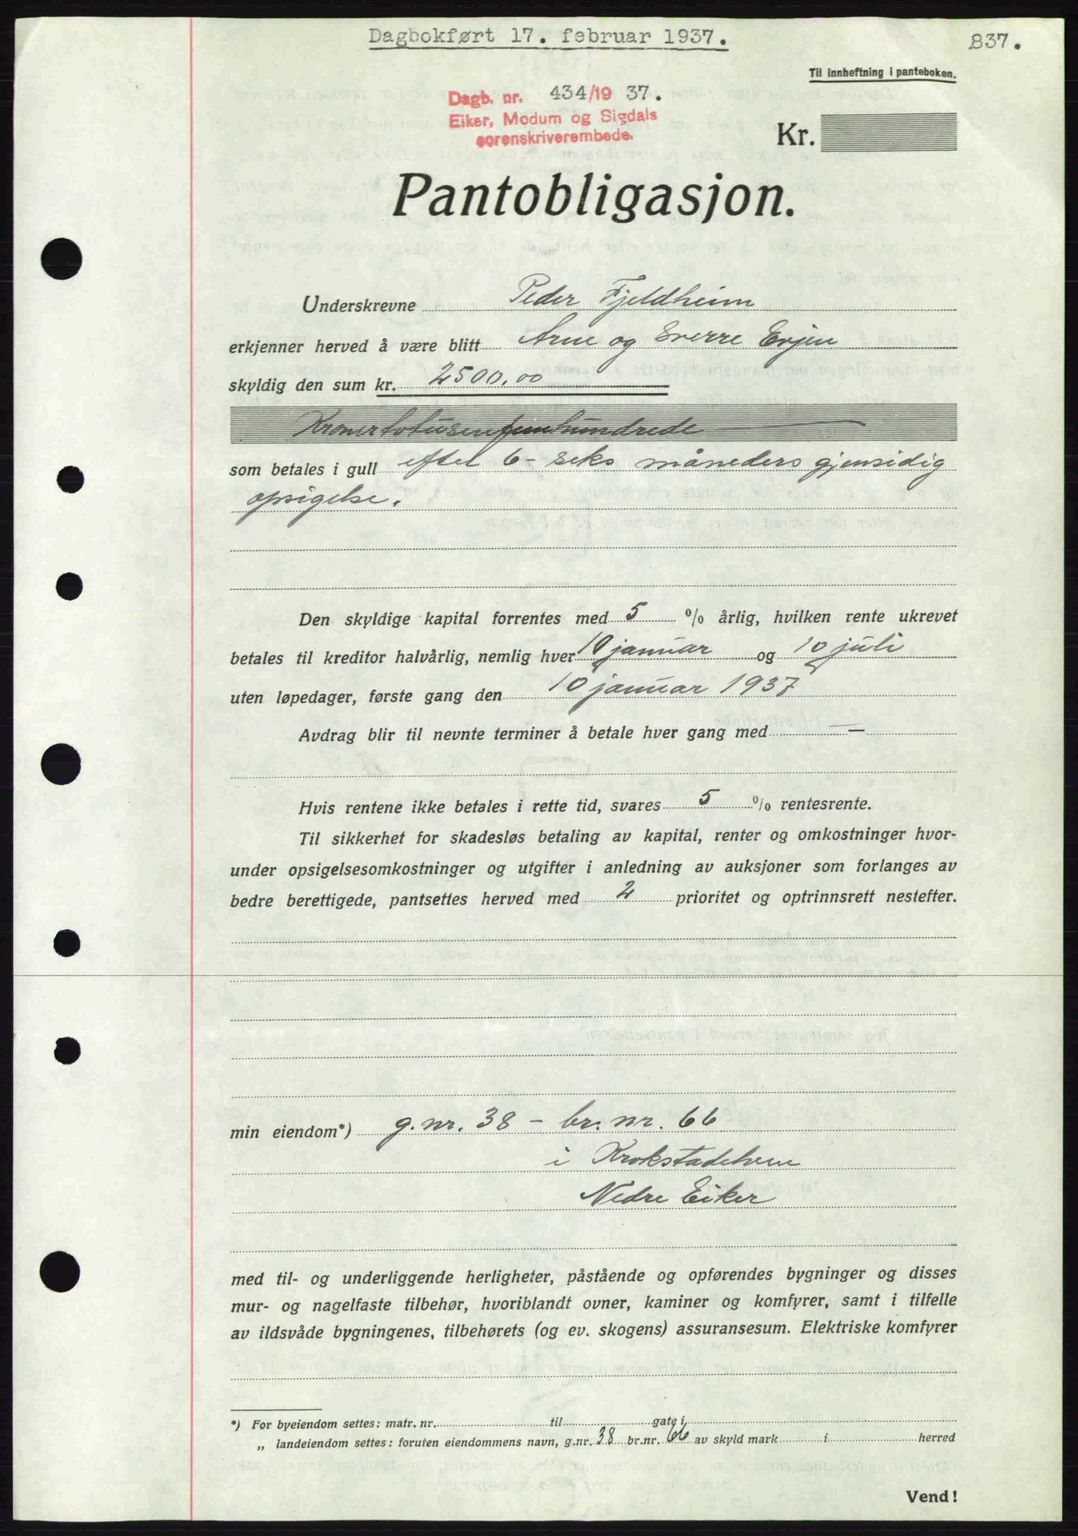 Dagbokført 17. februar 1937.
837.
Til innheftning i panteboken.
Dagb. nr. 434/19 37.
Eiker, Modum og Sigdals
sorenskriverembede.
Kr.
Pantobligasjon.
Underskrevne Peder Fjeldheim
erkjenner herved å være blitt Arne og Sverre Evjen
skyldig den sum kr. 2500,00
Kroner totusenfemhundrede
som betales i gull efter 6 - seks måneders gjensidig
opsigelse.
Den skyldige kapital forrentes med 5 % årlig, hvilken rente ukrevet
betales til kreditor halvårlig, nemlig hver 10 januar og 10 juli
uten løpedager, første gang den 10 januar 1937
Avdrag blir til nevnte terminer å betale hver gang med —
Hvis rentene ikke betales i rette tid, svares 5 % rentesrente.
Til sikkerhet for skadesløs betaling av kapital, renter og omkostninger hvor-
under opsigelsesomkostninger og utgifter i anledning av auksjoner som forlanges av
bedre berettigede, pantsettes herved med 2 prioritet og optrinnsrett nestefter.
min eiendom*) g.nr. 38 - br. nr. 66
i Krokstadelven
Nedre Eiker
med til- og underliggende herligheter, påstående og opførendes bygninger og disses
mur- og nagelfaste tilbehør, hvoriblandt ovner, kaminer og komfyrer, samt i tilfelle
av ildsvåde bygningenes, tilbehørets (og ev. skogens) assuransesum. Elektriske komfyrer
*) For byeiendom settes: matr. nr. til gate i
„ landeiendom settes: foruten eiendommens navn, g.nr. 38 br.nr. 66 av skyld mark i herred
Vend!